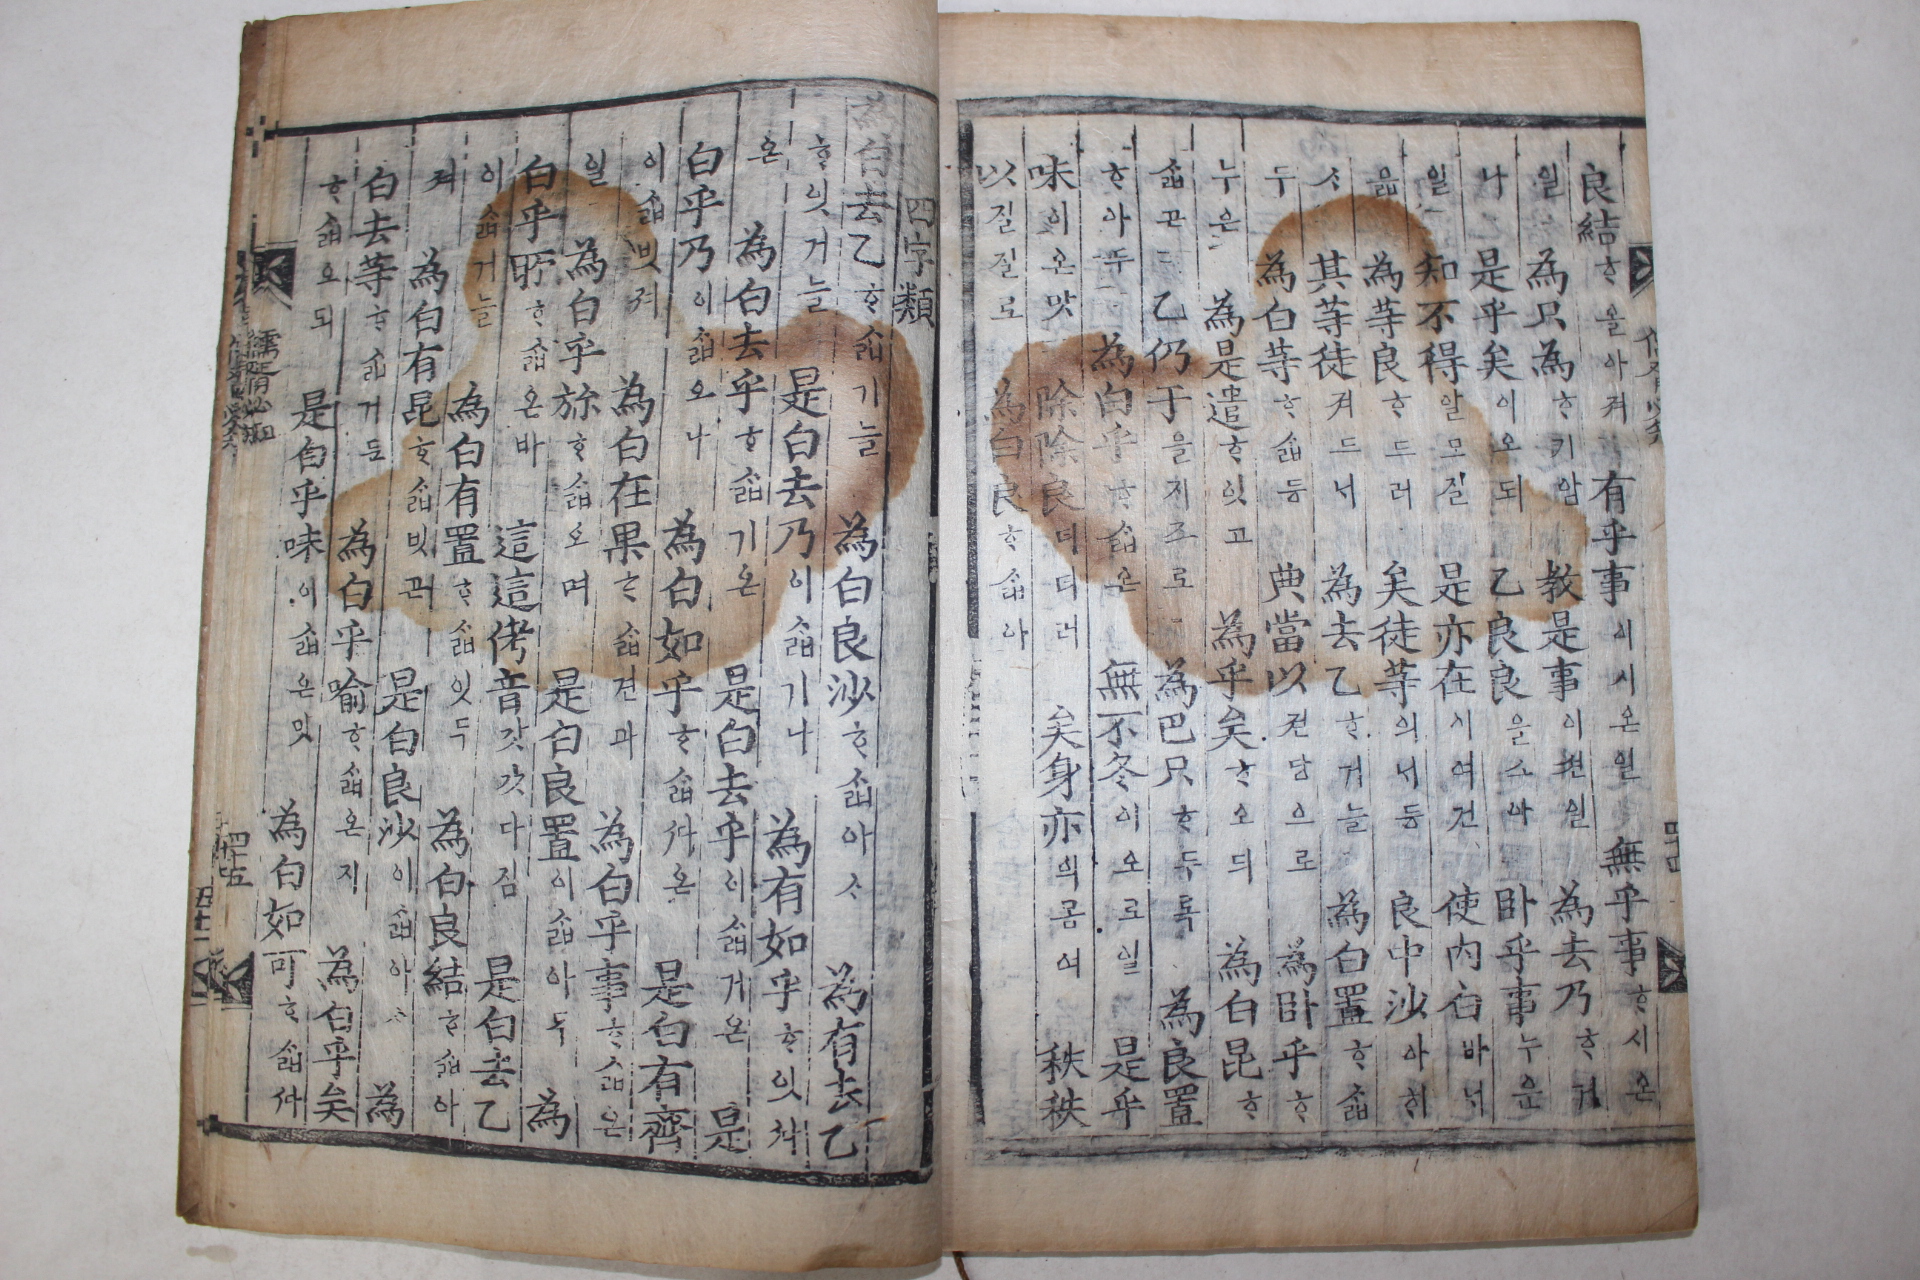 良結ᄒᆞ올아져 有乎事이시온일 無乎事ᄒᆞ시온
일 為只為ᄒᆞ기암 教是事이변일 為去乃ᄒᆞ거
나 是乎矣이오되 乙良良을스아 卧乎事누온
일 知不得알모질 是亦在이여건 使內白바ᄂᆡ
ᄉᆞᆲ 為等良ᄒᆞ드러 矣徒等의ᄂᆡ등 良中沙아ᄒᆡ
ᄉᆞ 其等徒져드ᄂᆡ 為去乙ᄒᆞ거늘 為白置ᄒᆞᄉᆞᆲ
두 為白等ᄒᆞᄉᆞᆲ등 典當以전당으로 為卧乎ᄒᆞ
누온 為是遣ᄒᆞ잇고 為乎矣ᄒᆞ오ᄃᆡ 為白昆ᄒᆞ
ᄉᆞᆲ곤 乙仍于을지즈로 為巴只ᄒᆞ두록 為良置
ᄒᆞ아두 為白乎ᄒᆞᄉᆞᆲ온 無不冬이오로일 是乎
味이온맛 除除良더더러 矣身亦의몸여 秩秩
以질질로 為白良ᄒᆞᄉᆞᆲ아
四字類
為白去乙ᄒᆞᄉᆞᆲ기늘 為白良沙ᄒᆞᄉᆞᆲ아ᄉᆞ 為有去乙
ᄒᆞ잇거늘 是白去乃이ᄉᆞᆲ기나 為有如乎ᄒᆞ잇다
온 為白去乎ᄒᆞᄉᆞᆲ기온 是白去乎이ᄉᆞᆲ거온 是
白乎乃이ᄉᆞᆲ오나 為白如乎ᄒᆞᄉᆞᆲ다온 是白有齊
이ᄉᆞᆲ빗져 為白在果ᄒᆞᄉᆞᆲ견과 為白乎事ᄒᆞᄉᆞᆲ온
일 為白乎旀ᄒᆞᄉᆞᆲ오며 是白良置이ᄉᆞᆲ아두 為
白乎所ᄒᆞᄉᆞᆲ온바 這這侤音갓갓다짐 是白去乙
이ᄉᆞᆲ거늘 為白有置ᄒᆞᄉᆞᆲ잇두 為白良結ᄒᆞᄉᆞᆲ아
져 為白有昆ᄒᆞᄉᆞᆲ빗곤 是白良沙이ᄉᆞᆲ아ᄉᆞ 為
白去等ᄒᆞᄉᆞᆲ거든 為白乎喻ᄒᆞᄉᆞᆲ온지 為白乎矣
ᄒᆞᄉᆞᆲ오되 是白乎味이ᄉᆞᆲ온맛 為白如可ᄒᆞᄉᆞᆲ다